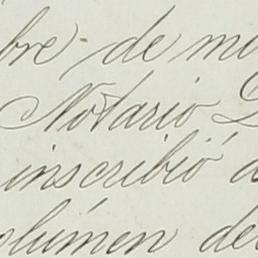 bre de mi
Notario D
inscribió a
olúmen del